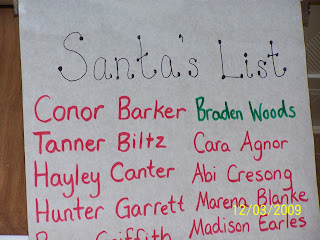 Santa's List
Conor Barker
Tanner Biltz
Hayley Canter
Hunter Garrett
Griffith
Braden Woods
Cara Agnor
Abi Cresong
Marena Blanke
Madison Earles
12/03/2009